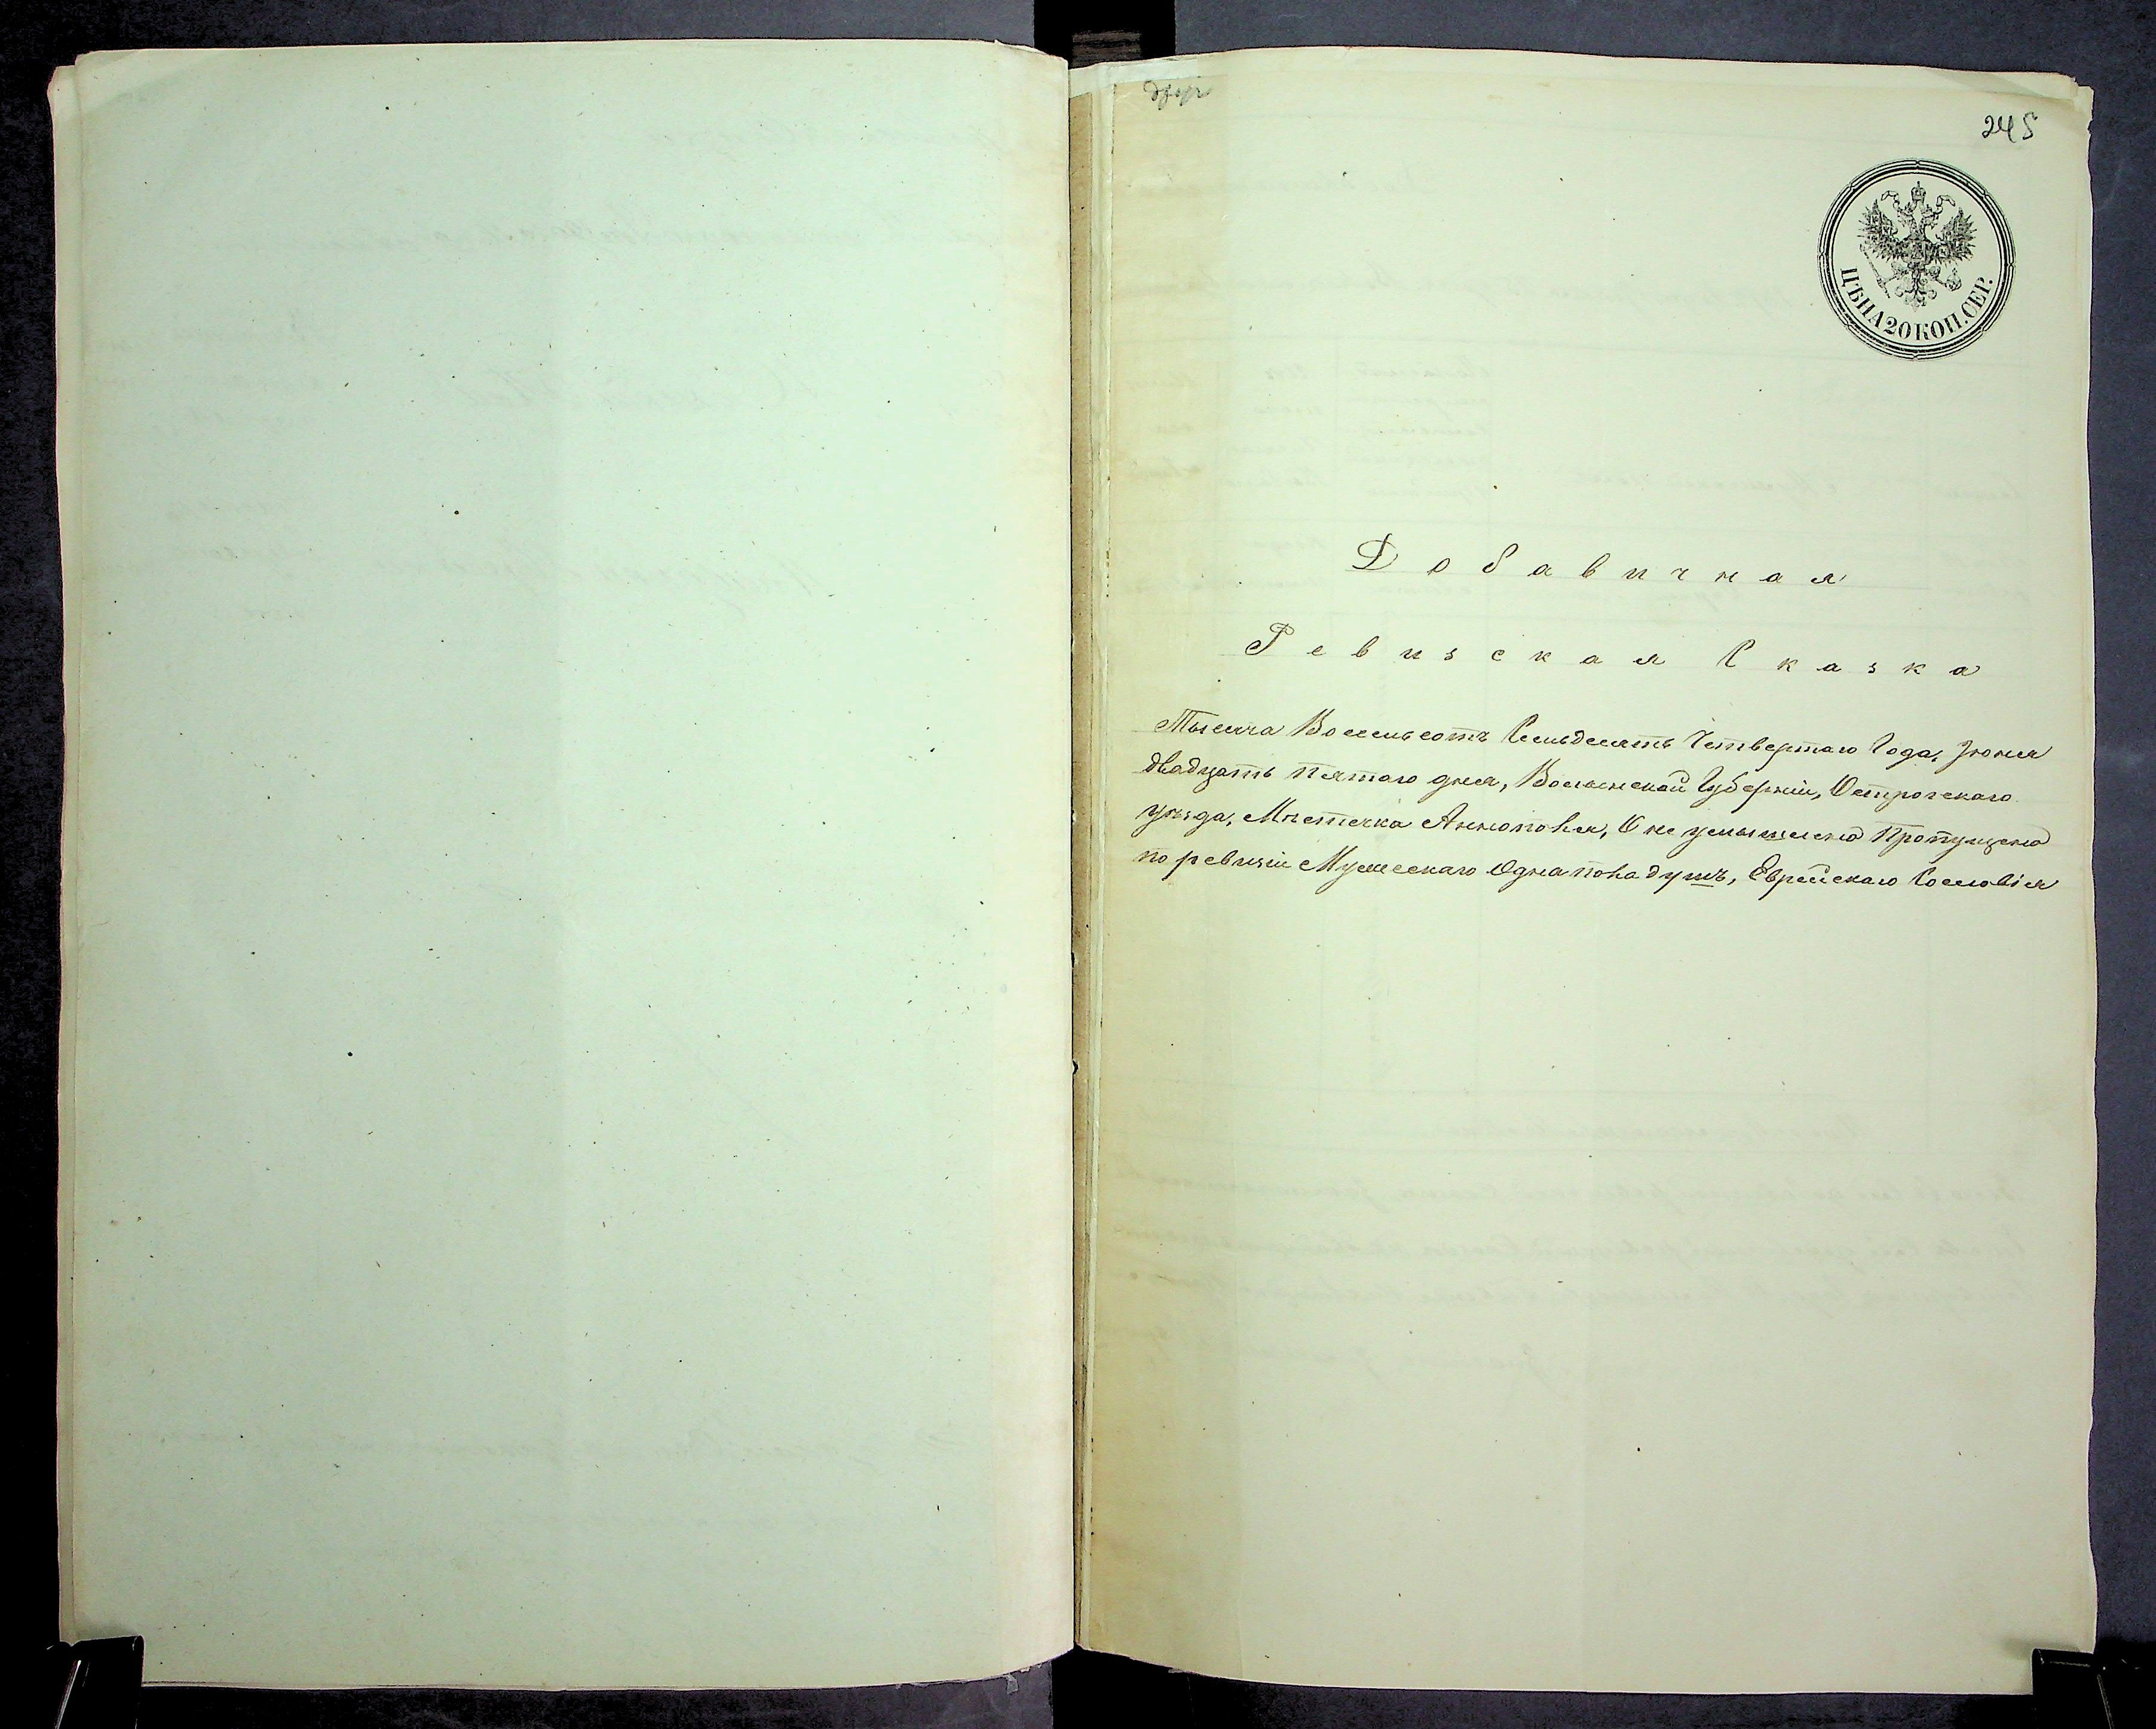 245
ЦѢНА 20 КОП. СЕР.
Добавичная
Ревизская Сказка
Тысяча Восемьсотъ Семьдесятъ Четвертаго Года, Іюня
двадцать пятаго дня, Волынской Губерніи, Острогскаго
уѣзда, Мѣстечка Аннополя, О не умышлено Пропущено
по ревизіи Мужескаго Одна пола душъ, Еврейскаго Сословія